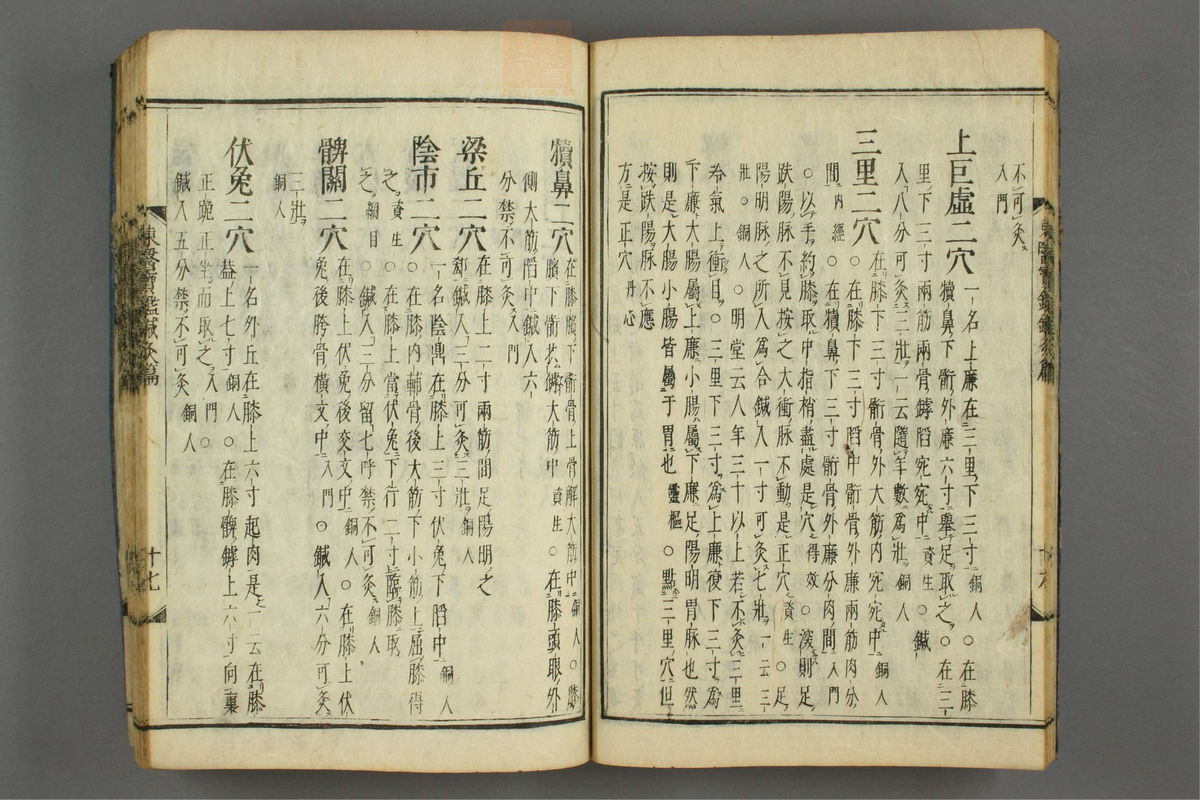 不可灸
入門
上巨虛二穴
一名上廉在三里下三寸銅人○在膝
犢鼻下䯒外廉六寸舉足取之○在三
里下三寸兩筋兩骨罅陷宛宛中資生○鍼
入八分可灸三壯一云隨年數爲壯銅人
三里二穴
在膝下三寸䯒骨外大筋內宛宛中銅人
○在膝下三寸䯒骨外廉兩筋肉分
間內經○在犢鼻下三寸䯒骨外廉分肉間入門
○以手約膝取中指梢盡處是穴得效○深則足
趺陽脉不見按之大衝脉不動是正穴資生○足
陽明脉之所入爲合鍼入一寸可灸七壯一云三
壯銅人○明堂云人年三十以上若不灸三里
令氣上衝目○三里下三寸爲上廉復下三寸爲
下廉大腸屬上廉小腸屬下廉足陽明胃脉也然
則是大腸小腸皆屬于胃也靈樞○點三里穴但
按趺陽脉不應
方是正穴丹心
東醫寶鑑鍼灸篇 十六
犢鼻二穴
在膝臏下䯒骨上骨解大筋中銅人○膝
臏下䯒挾罅大筋中資生○在膝頭眼外
側大筋陷中鍼入六
分禁不可灸入門
梁丘二穴
在膝上二寸兩筋間足陽明之
郄鍼入三分可灸三壯銅人
陰市二穴
一名陰鼎在膝上三寸伏兔下陷中銅人
○在膝內輔骨後大筋下小筋上屈膝得
之資生○在膝上當伏兔下行二寸臨膝取
之綱目○鍼入三分留七呼禁不可灸銅人
髀關二穴
在膝上伏兔後交文中銅人○在膝上伏
兔後胯骨橫文中入門○鍼入六分可灸
三壯
銅人
伏兔二穴
一名外丘在膝上六寸起肉是一云在膝
蓋上七寸銅人○在膝髀罅上六寸向裏
正跪正坐而取之入門○
鍼入五分禁不可灸銅人
東醫寶鑑鍼灸篇 十七